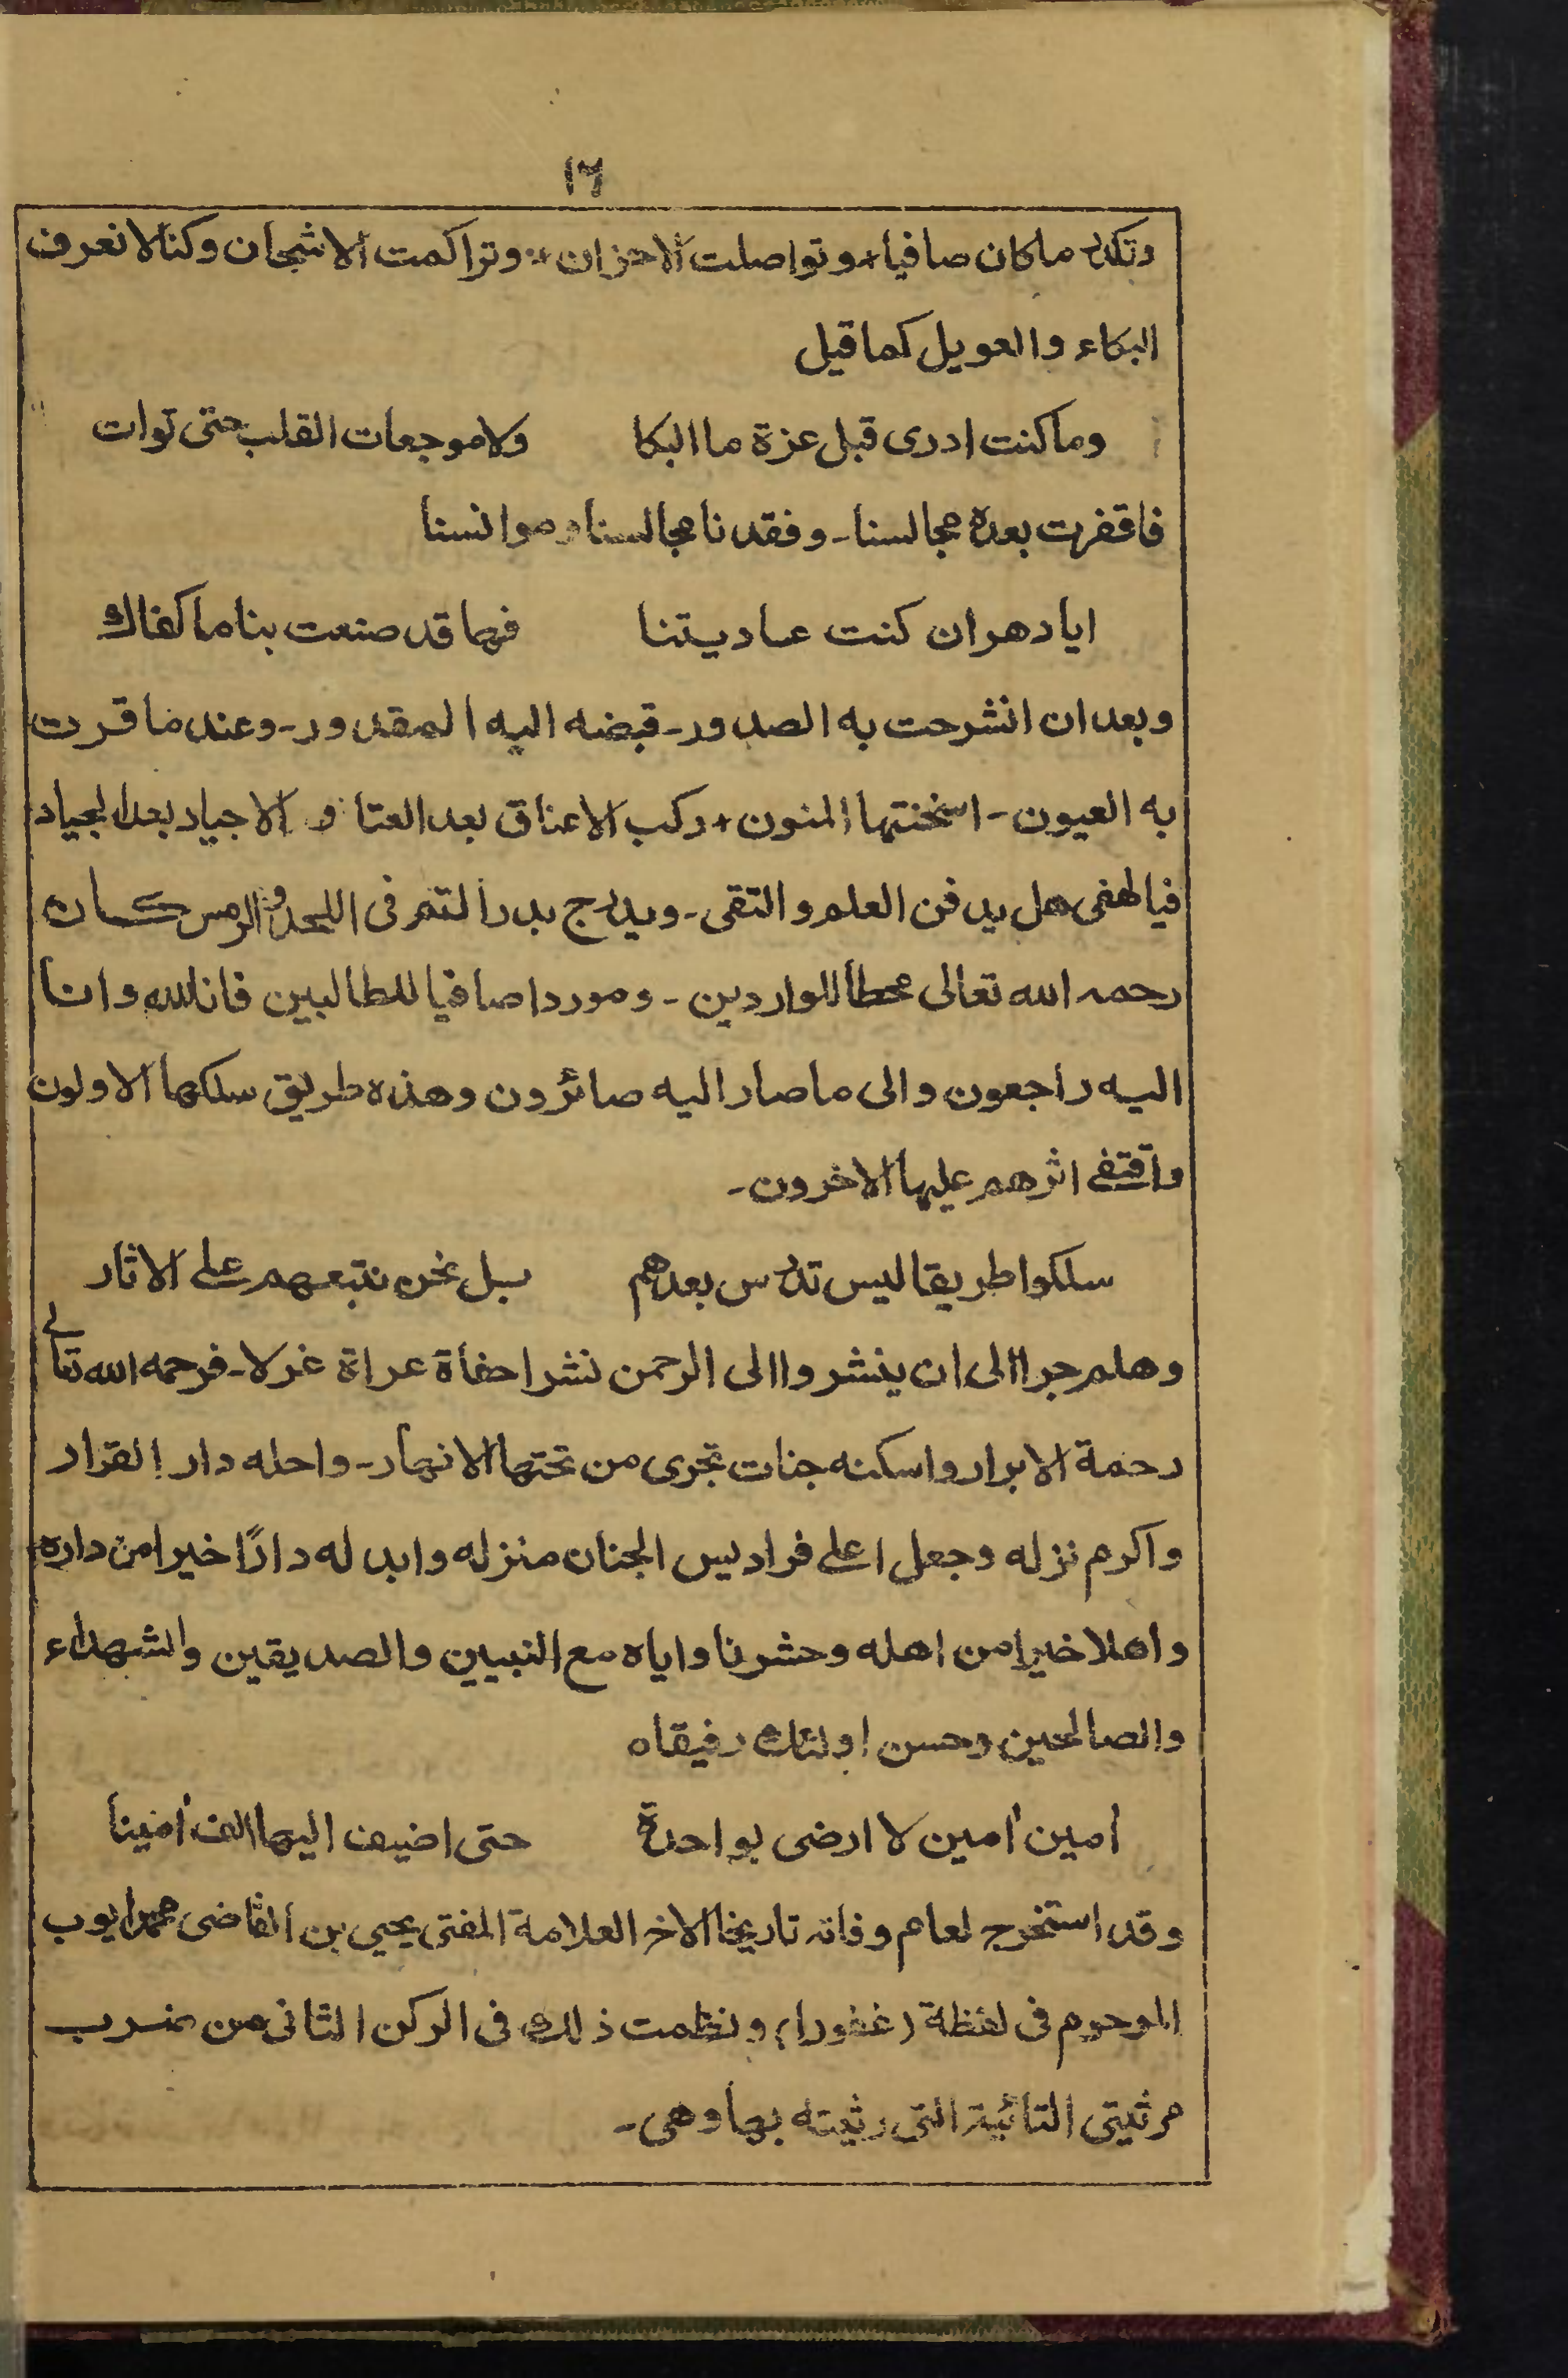 ١٦
وتكدر ماكان صافيا * وتواصلت الاحزان * وتراكمت الاشجان وكنالانعرف
البكاء والعويل كماقيل
وماكنت ادرى قبل عزة ما البكا ولاموجعات القلب حتى توات
فاقفرت بعده مجالسنا - وفقدنا مجالسنا وموانسنا
ايا دهر ان كنت عاديتنا فها قد صنعت بنا ما كفاك
وبعد ان انشرحت به الصدور - قبضه اليه المقدور - وعند ما قرت
به العيون - اسخنتها المنون * ركب الاعناق بعد العتا و الاجياد بعد الجياد
فيالهفى هل يدفن العلم والتقى - ويدرج بدر التم فى اللحد والرمس كان
رحمه الله تعالى محطا للواردين - وموردا صافيا للطالبين فانا لله وانا
اليه راجعون والى ماصار اليه صائرون وهذه طريق سلكها الاولون
واقتفى اثرهم عليها الاخرون -
سلكوا طريقا ليس تدرس بعدهم بل نحن نتبعهم على الاثار
وهلم جرا الى ان ينشروا الى الرحمن نشرا حفاة عراة غرلا - فرحمه الله تعالى
رحمة الابرار واسكنه جنات تجرى من تحتها الانهار - واحله دار القرار
واكرم نزله وجعل اعلى فراديس الجنان منزله وابدله دارًا خيرا من داره
واهلا خيرا من اهله وحشرنا واياه مع النبيين والصديقين والشهداء
والصالحين وحسن اولئك رفيقاه
امين امين لا ارضى بواحدة حتى اضيف اليها الف امينا
وقد استخرج لعام وفاته تاريخا الاخ العلامة المفتى يحيى بن القاضى محمد ايوب
المرحوم فى لفظة (غفورا) ونظمت ذلك فى الركن الثانى من ضرب
مرثيتى التائية التى رثيته بها وهى -